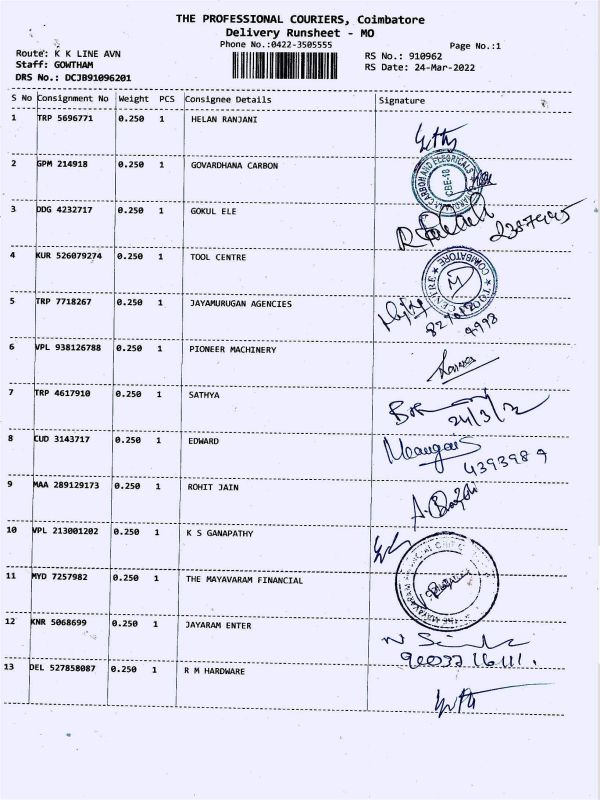 THE PROFESSIONAL COURIERS, Coimbatore
Delivery Runsheet - MO
Phone No.:0422-3505555
Page No.:1
Route: K K LINE AVN
Staff: GOWTHAM
DRS No.: DCJB91096201
RS No.: 910962
RS Date: 24-Mar-2022
S No Consignment No Weight PCS Consignee Details Signature
1 TRP 5696771 0.250 1 HELAN RANJANI
2 GPM 214918 0.250 1 GOVARDHANA CARBON
CARBON AND ELECRICALS
CBE-18
3 DDG 4232717 0.250 1 GOKUL ELE
4 KUR 526079274 0.250 1 TOOL CENTRE
TOOL CENTRE
COIMBATORE
5 TRP 7718267 0.250 1 JAYAMURUGAN AGENCIES
9998
6 VPL 938126788 0.250 1 PIONEER MACHINERY
7 TRP 4617910 0.250 1 SATHYA
24/3/2
8 CUD 3143717 0.250 1 EDWARD
4393989
9 MAA 289129173 0.250 1 ROHIT JAIN
10 VPL 213001202 0.250 1 K S GANAPATHY
11 MYD 7257982 0.250 1 THE MAYAVARAM FINANCIAL
THE MAYAVARAM
12 KNR 5068699 0.250 1 JAYARAM ENTER
13 DEL 527858087 0.250 1 R M HARDWARE